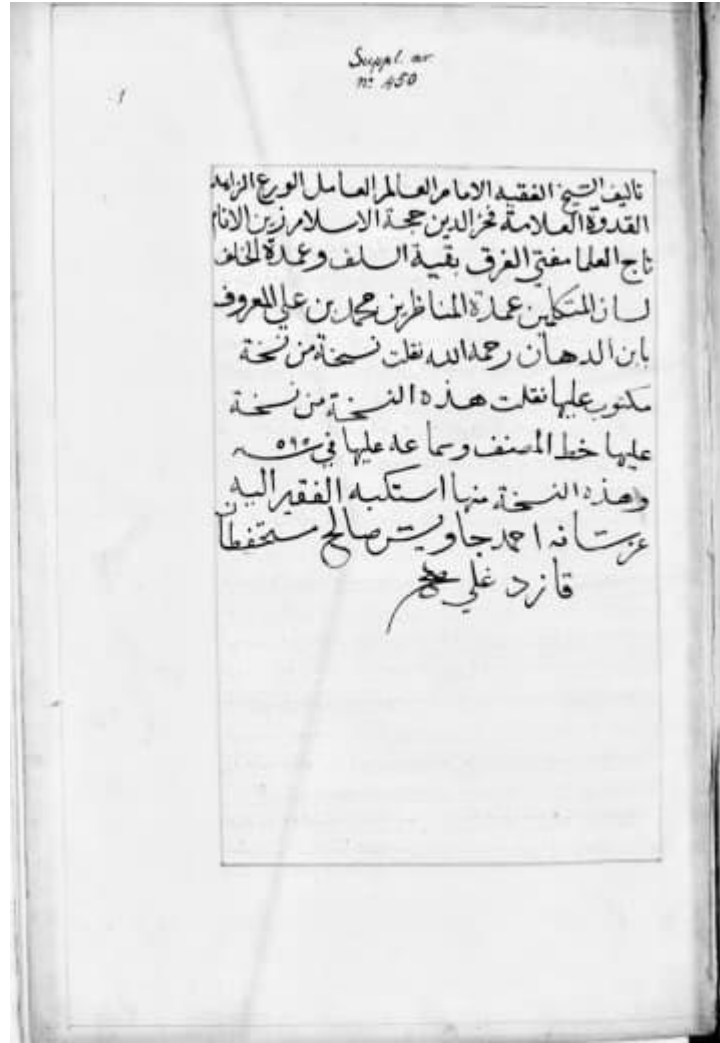 Suppl. ar.
n° 450
1
تاليف الشيخ الفقيه الامام العالم العامل الورع الزاهد
القدوة العلامة فخر الدين حجة الاسلام زين الانام
تاج العلما مفتي الفرق بقية السلف وعمدة الخلف
لسان المتكلمين عمدة المناظرين محمد بن علي المعروف
بابن الدهان رحمه الله نقلت نسخة من نسخة
مكتوب عليها نقلت هذه النسخة من نسخة
عليها خط المصنف وسماعه عليها في سنه ٥٩٥
وهذه النسخة منها استكتبه الفقير اليه
عز شانه احمد جاويش صالح مستحفظان
قازد غلي